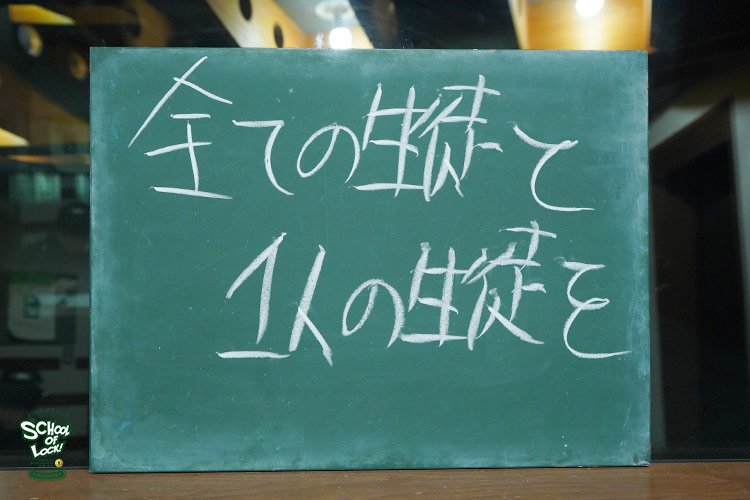 全ての生徒と
1人の生徒と
SCHOOL
OF
LOCK!